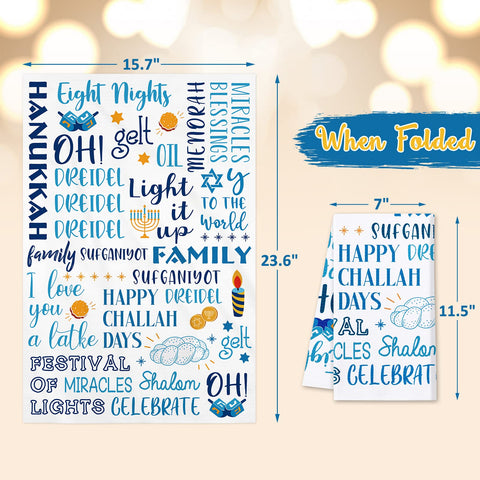 15.7"
HANUKKAH
Eight Nights
OH!
gelt
OIL
MENORAH
MIRACLES
BLESSINGS
DREIDEL
DREIDEL
DREIDEL
Light
it
up
Y
TO THE
World
family
SUFGANIYOT
FAMILY
SUFGANIYOT
I love
you
a latke
HAPPY DREIDEL
CHALLAH
DAYS
gelt
FESTIVAL
OF MIRACLES Shalom
LIGHTS CELEBRATE
OH!
23.6"
When Folded
7"
SUFGANI
HAPPY
CHALLAH
DAYS
AL
CLES Shalom
CELEBRAT
11.5"